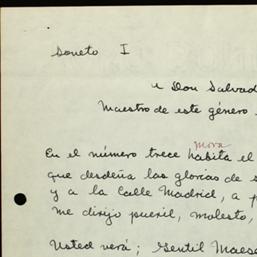 Soneto I
A Don Salvad
Maestro de este género
mora
En el número trece habita el
que desdeña las glorias de s
y a la Calle Madrid, a p
me dirijo pueril, molesto,
Usted verá; Gentil Maes